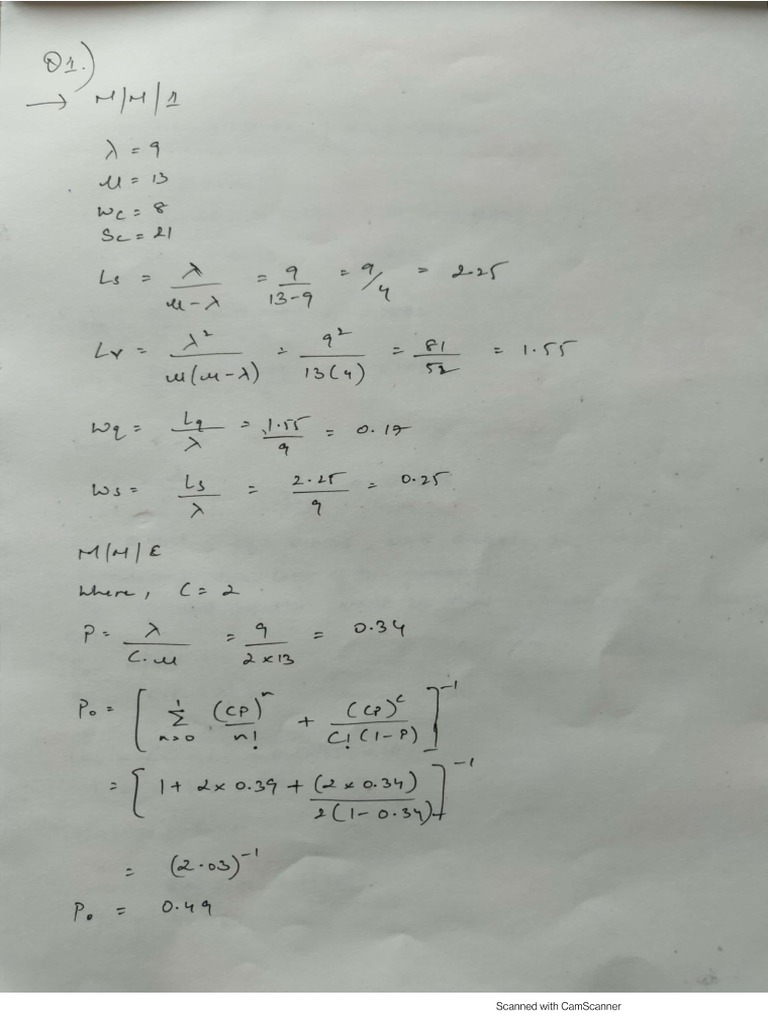 Q1.)
→ M/M/1
λ = 9
μ = 13
Wc = 8
Sc = 21
Ls = λ / (μ - λ) = 9 / (13-9) = 9/4 = 2.25
Lq = λ² / (μ(μ-λ)) = 9² / (13(4)) = 81/52 = 1.55
Wq = Lq / λ = 1.55 / 9 = 0.17
Ws = Ls / λ = 2.25 / 9 = 0.25
M/M/C
Where, C = 2
P = λ / (C.μ) = 9 / (2×13) = 0.34
P₀ = [ 1 Σ n=0 (CP)ⁿ / n! + (CP)ᶜ / (C!(1-P)) ]⁻¹
= [ 1 + 2×0.34 + (2×0.34) / (2(1-0.34)) ]⁻¹
= (2.03)⁻¹
P₀ = 0.49
Scanned with CamScanner